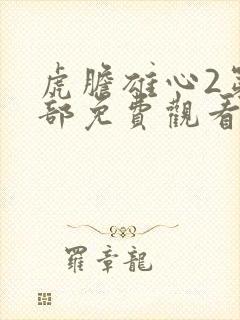 虎膽雄心2第
部免費觀看
羅章龍